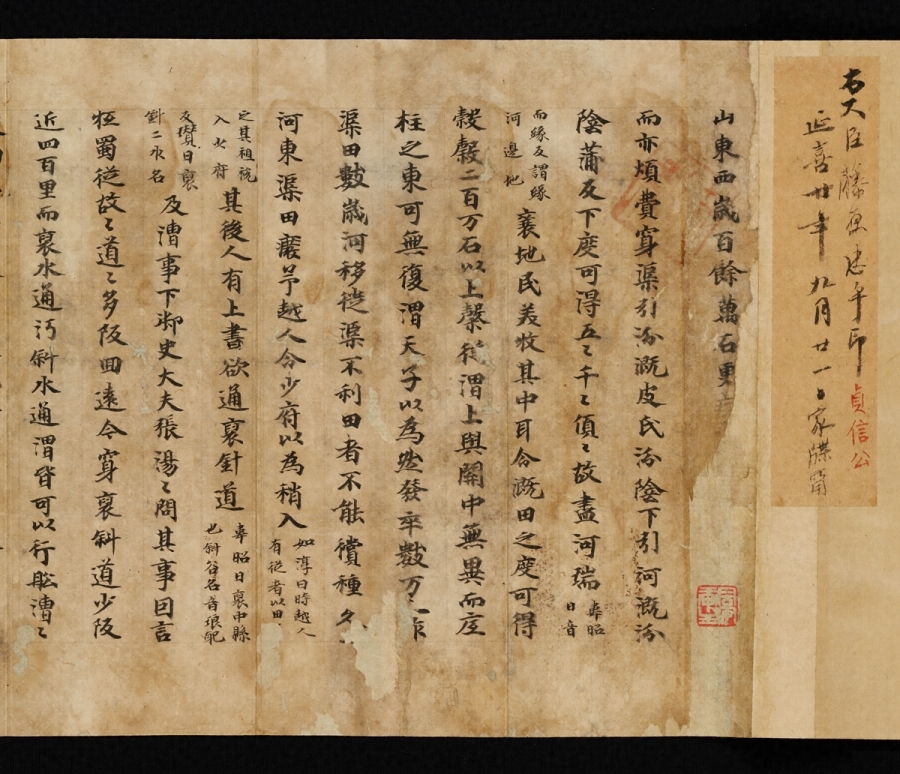 右大臣藤原忠平印 貞信公
延喜廿年九月廿一々家牒
山東西歳百餘萬石更
而亦煩費穿渠引汾溉皮氏汾陰下引河溉汾
陰蒲及下度可得五々千々頃々故盡河堧 韋昭曰音
而緣反謂緣河邊地 襄地民茭牧其中耳今溉田之度可得
穀穀二百万石以上從渭上與關中無異而底
柱之東可無復渭天子以為然發卒數万人作
渠田數歳河移徙渠不利田者不能償種久
河東渠田廢予越人令少府以為稍入 如淳曰時越人有徙者以田
之其租稅入少府 其後人有上書欲通襃斜道 韋昭曰襃中縣也斜谷名音琅耶
反瓚曰襃斜二水名 及漕事下御史大夫張湯々問其事因言
抵蜀從故々道々多阪回遠今穿襃斜道少阪
近四百里而襃水通沔斜水通渭皆可以行舩漕々